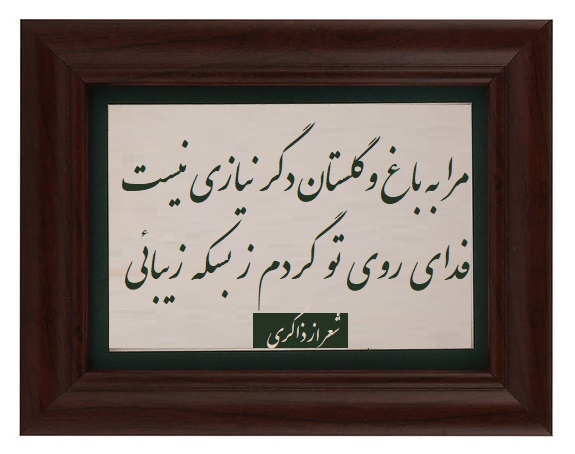 مرا به باغ و گلستان دگر نیازی نیست
فدای روی تو گردم ز بسکه زیبائی
شعر از ذاکری